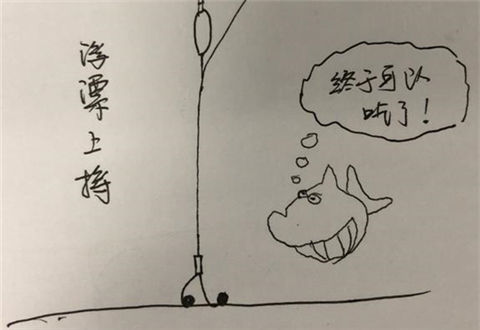 浮漂上
终于可以
吃了！